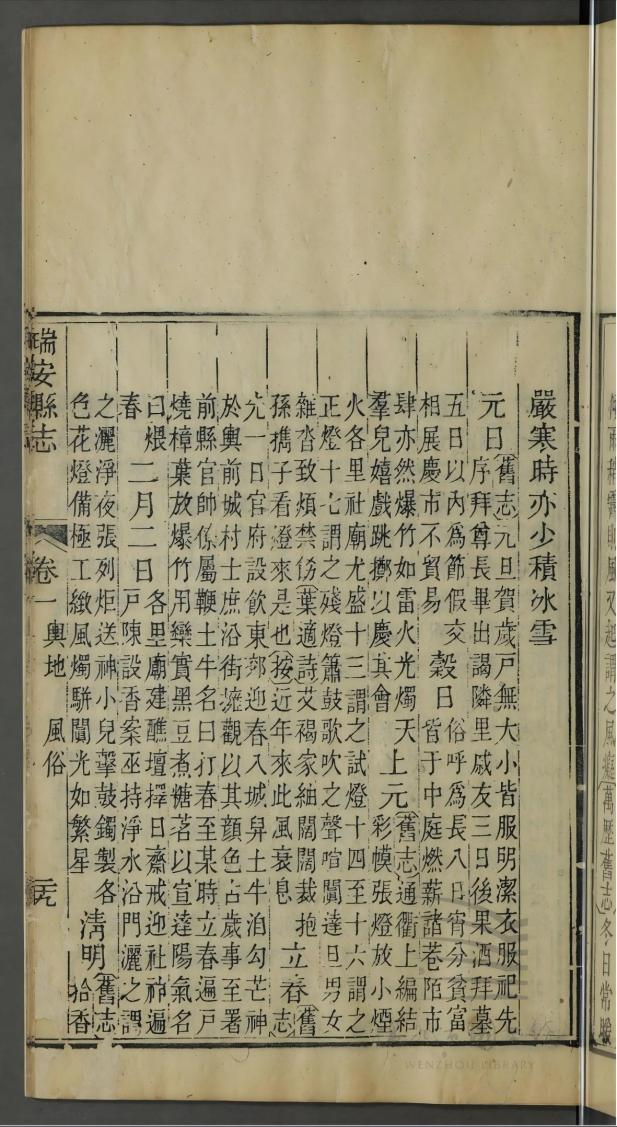 嚴寒時亦少積冰雪
元日舊志元旦賀歲戶無大小皆服明潔衣服祀先
序拜尊長畢出謁隣里戚友三日後果酒拜墓
五日以內爲節假交
相展慶市不貿易
穀日俗呼爲長八日宵分貧富
皆于中庭燃薪諸巷陌市
肆亦然爆竹如雷火光燭天
上元舊志通衢上編結
彩幙張燈放小煙
羣兒嬉戲跳擲以慶其會
火各里社廟尤盛十三謂之試燈十四至十六謂之
正燈十七謂之殘燈簫鼓歌吹之聲喧闐達旦男女
雜沓致煩禁仿葉適詩艾褐家紬闊闊裁抱
孫携子看燈來是也按近年來此風衰息
立春舊志
先一日官府設飲東郊迎春入城舁土牛洎勾芒神
於輿前城村士庶沿街擁觀以其顔色占歲事至署
前縣官帥係屬鞭土牛名曰打春至某時立春遍戶
燒樟葉放爆竹用欒實黑豆煮糖茗以宣達陽氣名
曰煨
春
二月二日各里廟建醮壇擇日齋戒迎社神遍
戶陳設香案巫持淨水沿門灑之謂
之灑淨夜張列炬送神小兒鼕鼓鐲製各
色花燈備極工緻風燭駢闐光如繁星
清明舊志
拾香
瑞安縣志 卷一 輿地 風俗
萬歷舊志冬日常暖
又起謂之風癡
WENZHOU LIBRARY